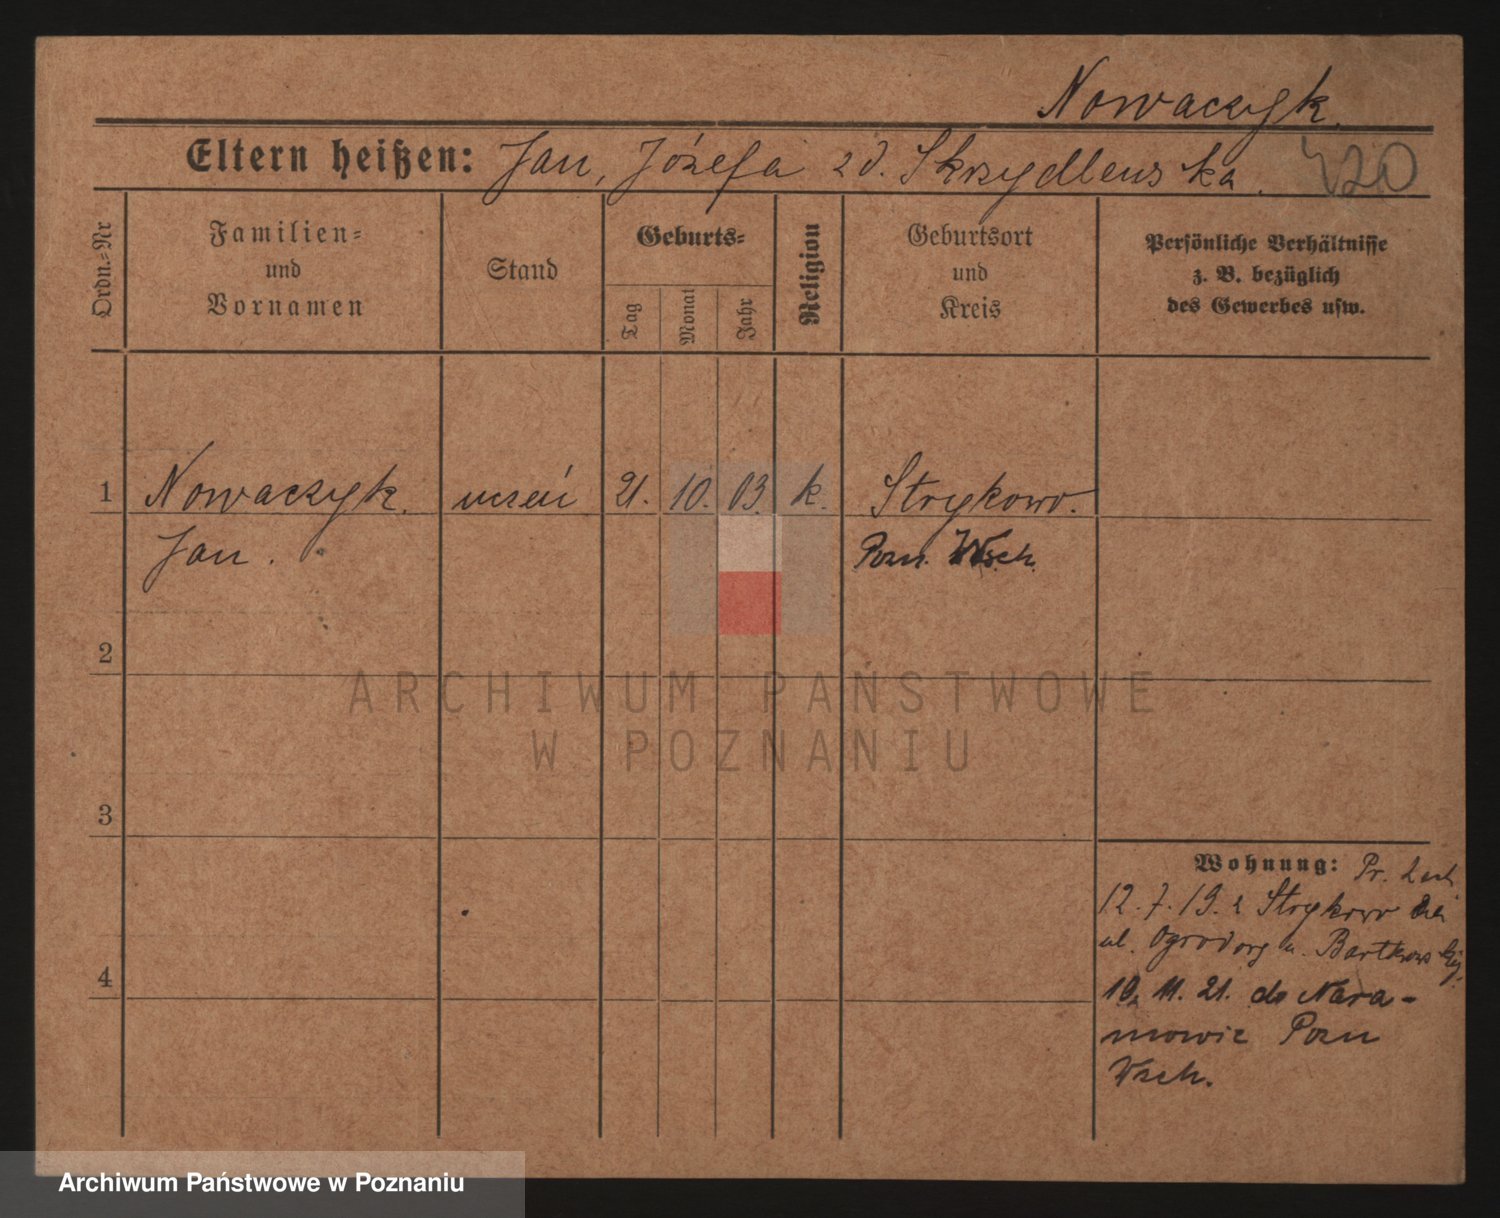 Nowaczyk.
Eltern heißen: Jan, Józefa zd. Skrzydlewska. 420
Ordn.-Nr
Familien-
und
Vornamen
Stand
Geburts-
Tag
Monat
Jahr
Religion
Geburtsort
und
Kreis
Persönliche Verhältnisse
z. B. bezüglich
des Gewerbes usw.
1 Nowaczyk. uczeń 21. 10. 03. k. Strykowo.
Jan. Pozn. Wsch.
2
ARCHIWUM PAŃSTWOWE
W POZNANIU
3
Wohnung: Pr.
12. 7. 19. z Strykowo
ul. Ogrodowa u. Bartkowskiej
10. 11. 21. do Nara-
mowic Pozn
Wsch.
4
Archiwum Państwowe w Poznaniu